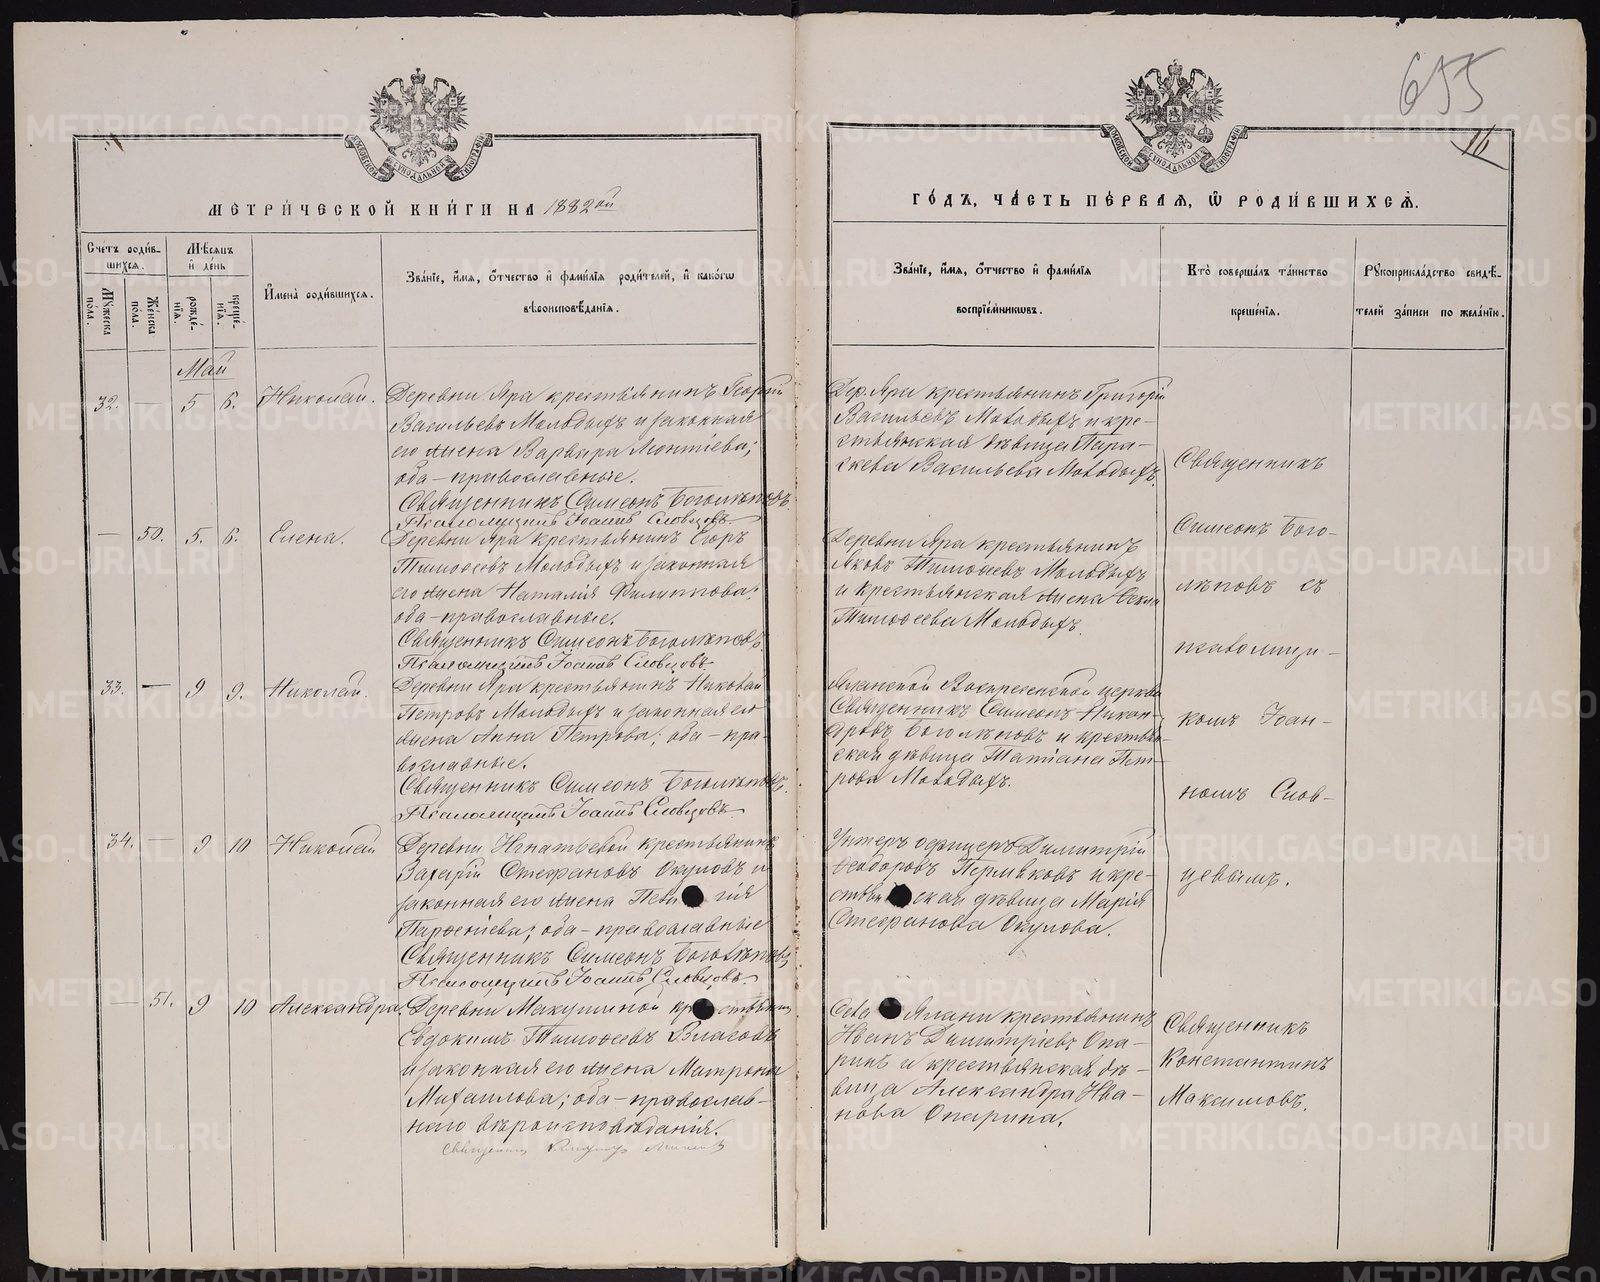 655
16
МЕТРИ́ЧЕСКОЙ КНИ́ГИ НА 1882ой
ГО́ДЪ, ЧА́СТЬ ПЕ́РВАЯ, Ѿ РОДИ́ВШИХСЯ.
Счетъ роди́вшихся.
Му́жеска по́ла.
Же́нска по́ла.
Мѣ́сяцъ и҆ де́нь
рожде́нїя.
креще́нїя.
И҆мена̀ роди́вшихся.
Зва́нїе, и҆́мя, ѻ҆́тчество и҆ фами́лїя роди́телей, и҆ како́гѡ
вѣроисповѣ́данїя.
Зва́нїе, и҆́мя, ѻ҆́тчество и҆ фами́лїя
воспрїе́мникѡвъ.
Кто̀ соверша́лъ та́инство
креще́нїя.
Рꙋкоприкла́дство свидѣ́-
телей за́писи по жела́нїю.
Май
32. — 5 6. Николай.
Деревни Яра крестьянинъ Георгій
Васильевъ Молодыхъ и законная
его жена Варвара Леонтіева;
оба – православные.
Священникъ Симеонъ Боголѣповъ.
Псаломщикъ Іоаннъ Словцовъ
Дер. Яра крестьянинъ Григорій
Васильевъ Молодыхъ и кре-
стьянская дѣвица Пара-
скева Васильева Молодыхъ.
— 50. 5. 6. Елена.
Деревни Яра крестьянинъ Егоръ
Тимофеевъ Молодыхъ и законная
его жена Наталія Филиппова;
оба – православные.
Священникъ Симеонъ Боголѣповъ.
Псаломщикъ Іоаннъ Словцовъ
Деревни Яра крестьянинъ
Яковъ Тимофеевъ Молодыхъ
и крестьянская жена
Тимофеева Молодыхъ.
33. — 9 9. Николай.
Деревни Яра крестьянинъ Николай
Петровъ Молодыхъ и законная его
жена Анна Петрова; оба – пра-
вославные.
Священникъ Симеонъ Боголѣповъ.
Псаломщикъ Іоаннъ Словцовъ
Яланской Воскресенской церкви
Священникъ Симеонъ Никан-
дровъ Боголѣповъ и крестьян-
ская дѣвица Татіана Пет-
рова Молодыхъ.
34. — 9 10 Николай
Деревни Игнатьевой крестьянинъ
Захарій Стефановъ Окуловъ и
законная его жена
Парфеніева; оба – православные
Священникъ Симеонъ Боголѣповъ
Псаломщикъ Іоаннъ Словцовъ
Унтеръ офицеръ Димитрій
Ѳеодоровъ Пермяковъ и кре-
стьянская дѣвица Марія
Стефанова Окулова.
Священникъ
Симеонъ Бого-
лѣповъ съ
псаломщи-
комъ Іоан-
номъ Слов-
цевымъ.
— 51. 9 10 Александра.
Деревни Макушиной крестьянинъ
Евдокимъ Тимофеевъ Власовъ
и законная его жена Матрона
Михаилова; оба – православ-
наго вѣроисповѣданія.
Священникъ
Села Ялани крестьянинъ
Иванъ Димитріевъ Опа-
ринъ и крестьянская дѣ-
вица Александра Ива-
нова Опарина.
Священникъ
Константинъ
Максимовъ.
METRIKI.GASO-URAL.RU